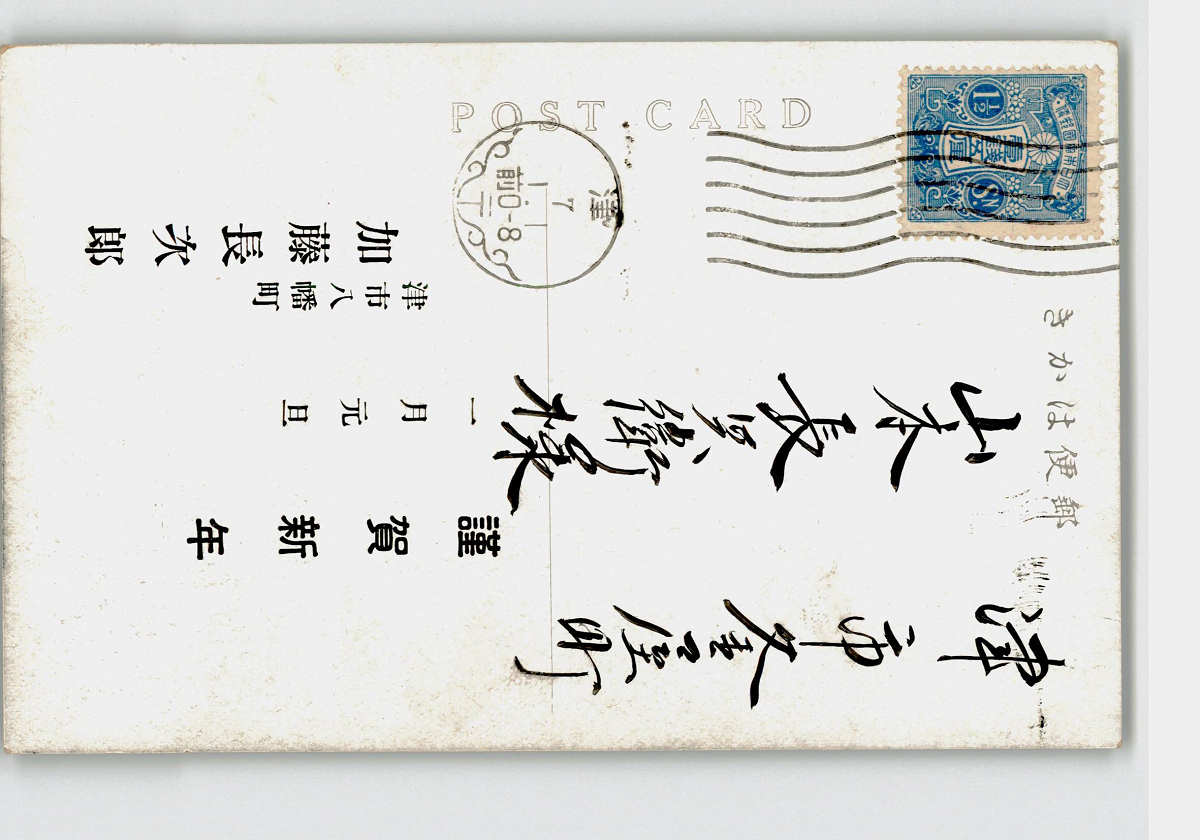 POST CARD
郵便はかき
大日本帝國郵便
壹錢五厘
1½
SN
津
7
前0-8
津市釜屋町
山本長兵衛様
謹賀新年
一月元旦
津市八幡町
加藤長次郎